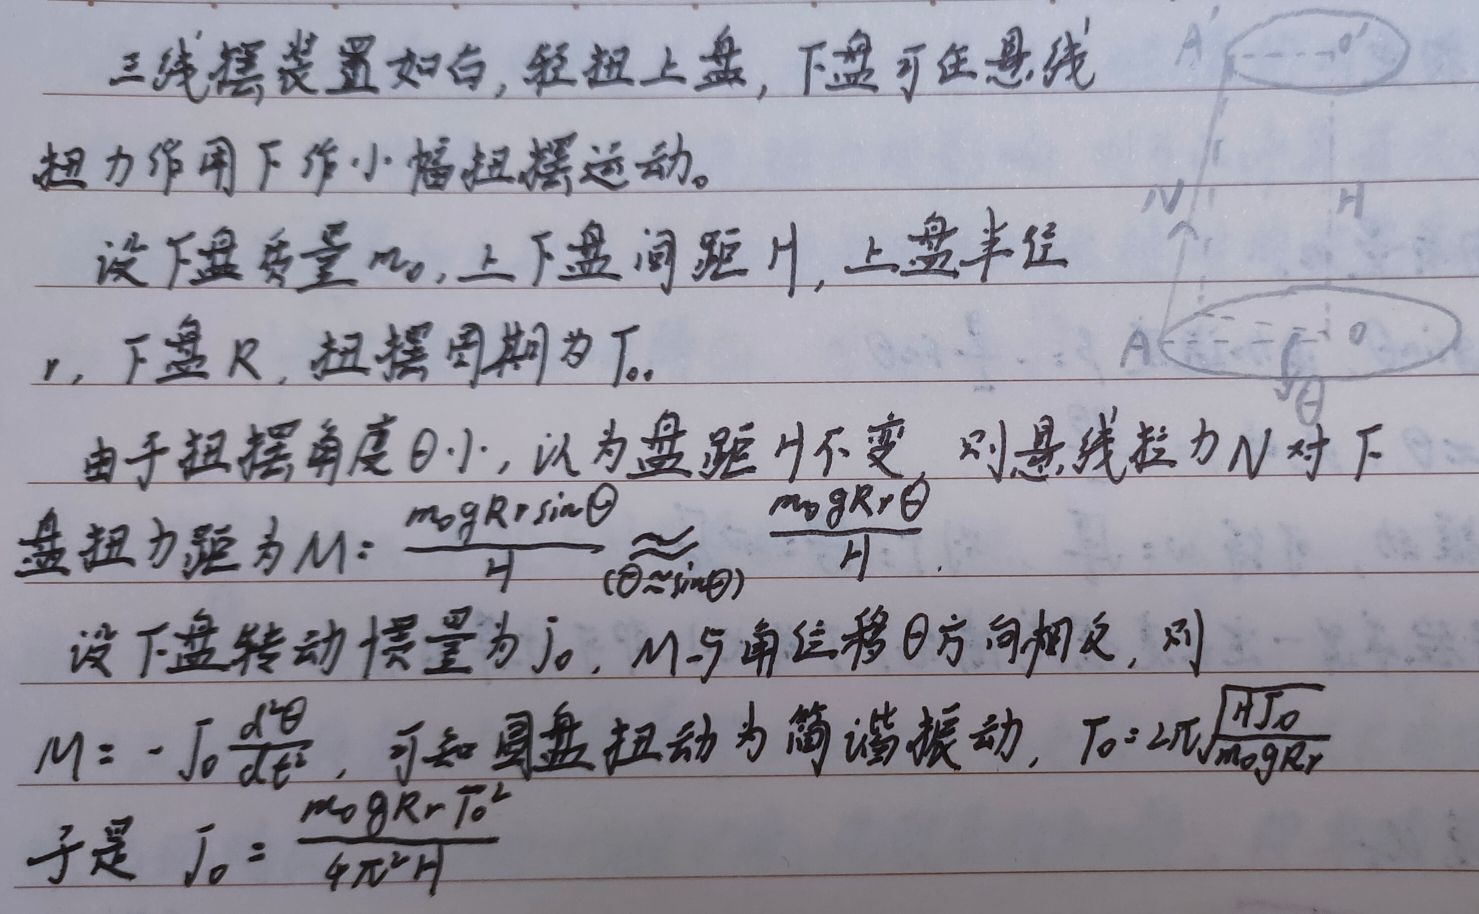 三线摆装置如右,轻扭上盘,下盘可在悬线
扭力作用下作小幅扭摆运动。
设下盘质量m₀,上下盘间距H,上盘半径
r,下盘R,扭摆周期为T₀。
由于扭摆角度θ小,认为盘距H不变,则悬线拉力N对下
盘扭力距为M= m₀gRrsinθ/H ≈(θ≈sinθ) m₀gRrθ/H.
设下盘转动惯量为J₀,M与角位移θ方向相反,则
M= -J₀ d²θ/dt²,可知圆盘扭动为简谐振动,T₀=2π√(HJ₀/m₀gRr)
于是 J₀= m₀gRrT₀²/4π²H
A' O'
N H
A O
θ